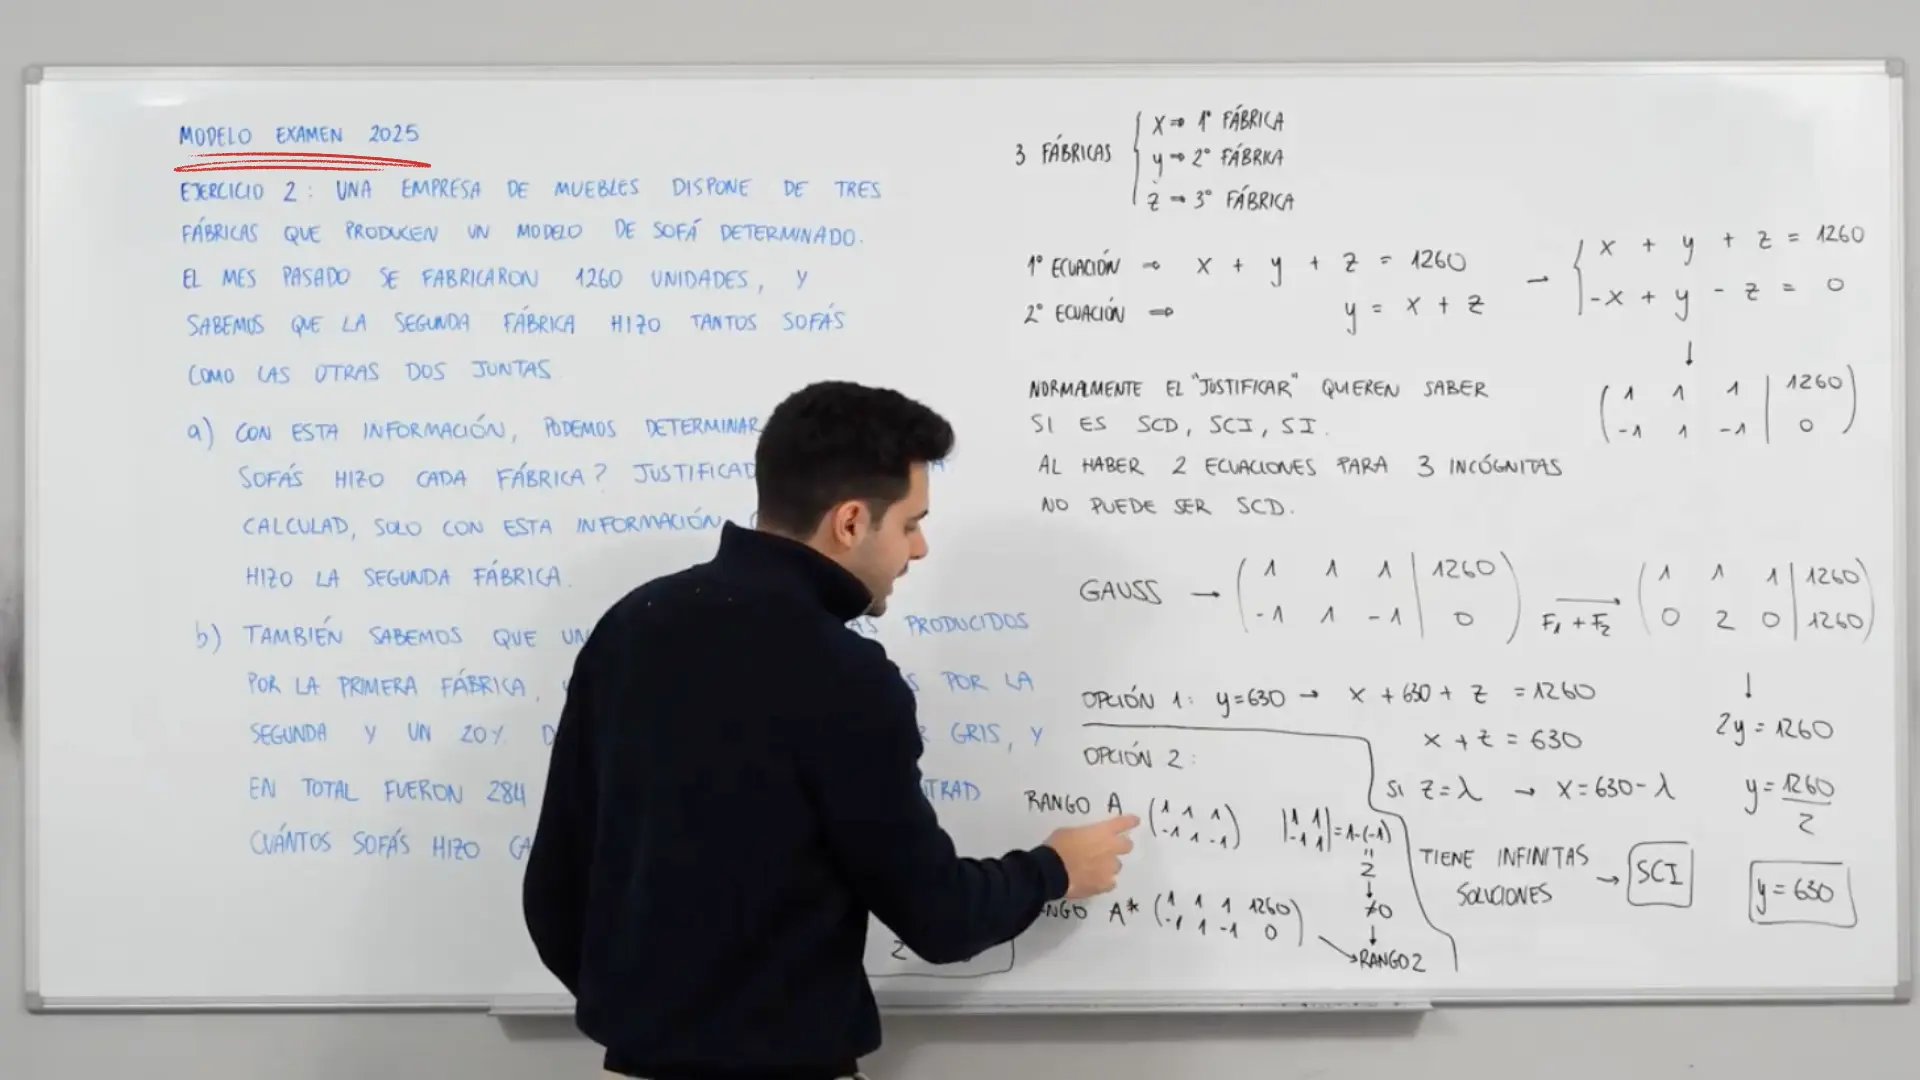 MODELO EXAMEN 2025
EJERCICIO 2: UNA EMPRESA DE MUEBLES DISPONE DE TRES
FÁBRICAS QUE PRODUCEN UN MODELO DE SOFÁ DETERMINADO.
EL MES PASADO SE FABRICARON 1260 UNIDADES, Y
SABEMOS QUE LA SEGUNDA FÁBRICA HIZO TANTOS SOFÁS
COMO LAS OTRAS DOS JUNTAS
a) CON ESTA INFORMACIÓN, PODEMOS DETERMINAR
SOFÁS HIZO CADA FÁBRICA? JUSTIFICAD
CALCULAD, SOLO CON ESTA INFORMACIÓN,
HIZO LA SEGUNDA FÁBRICA.
b) TAMBIÉN SABEMOS QUE UN PRODUCIDOS
POR LA PRIMERA FÁBRICA, S POR LA
SEGUNDA Y UN 20% D GRIS, Y
EN TOTAL FUERON 284 TRAD
CUÁNTOS SOFÁS HIZO CA
3 FÁBRICAS { x ⇒ 1º FÁBRICA
y → 2º FÁBRICA
z → 3º FÁBRICA
1º ECUACIÓN → x + y + z = 1260
2º ECUACIÓN ⇒ y = x + z
→ { x + y + z = 1260
-x + y - z = 0
↓
( 1 1 1 | 1260 )
( -1 1 -1 | 0 )
NORMALMENTE EL "JUSTIFICAR" QUIEREN SABER
SI ES SCD, SCI, SI.
AL HABER 2 ECUACIONES PARA 3 INCÓGNITAS
NO PUEDE SER SCD.
GAUSS → ( 1 1 1 | 1260 ) → ( 1 1 1 | 1260 )
( -1 1 -1 | 0 ) F1 + F2 ( 0 2 0 | 1260 )
OPCIÓN 1: y=630 → x + 630 + z = 1260
x + z = 630
Si z=λ → x=630-λ
TIENE INFINITAS
SOLUCIONES → SCI
↓
2y = 1260
y = 1260/2
y = 630
OPCIÓN 2:
RANGO A ( 1 1 1 ) | 1 1 |
( -1 1 -1 ) | -1 1 | = 1-(-1)
"
2
↓
≠0
↓
NGO A* ( 1 1 1 1260 )
( -1 1 -1 0 ) → RANGO 2
z